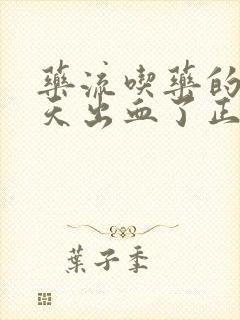 藥流喫藥的
天出血了正
葉子季